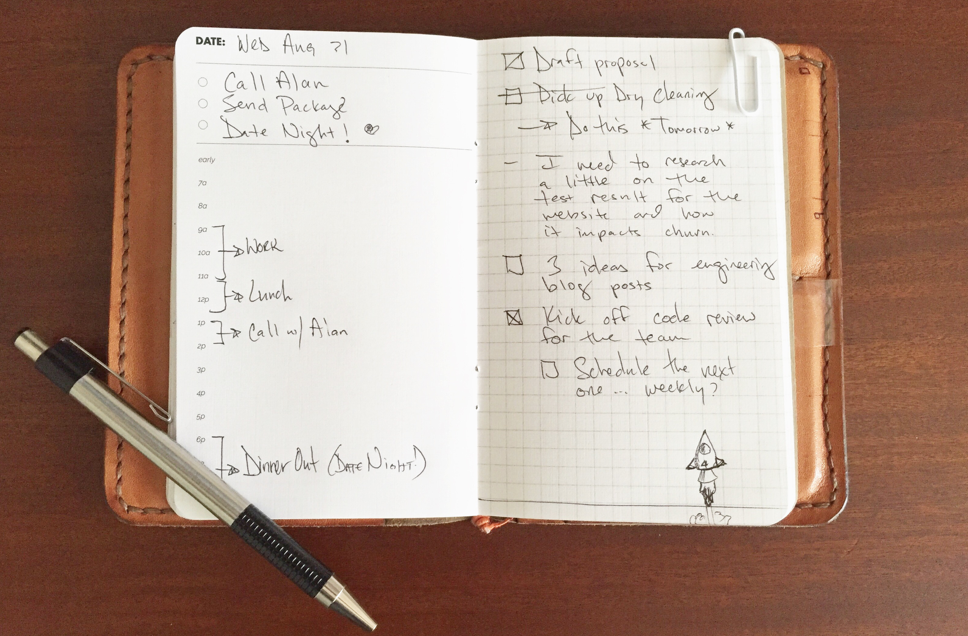 DATE: Wed Aug 21
Call Alan
Send Package
Date Night!
early
7a
8a
9a
10a
WORK
11a
12p
Lunch
1p
Call w/ Alan
2p
3p
4p
5p
6p
Dinner Out (DATE NIGHT!)
Draft proposal
Pick up Dry Cleaning
Do this *Tomorrow*
- I need to research
a little on the
test result for the
website and how
it impacts churn.
3 ideas for engineering
blog posts
Kick off code review
for the team
Schedule the next
one ... weekly?